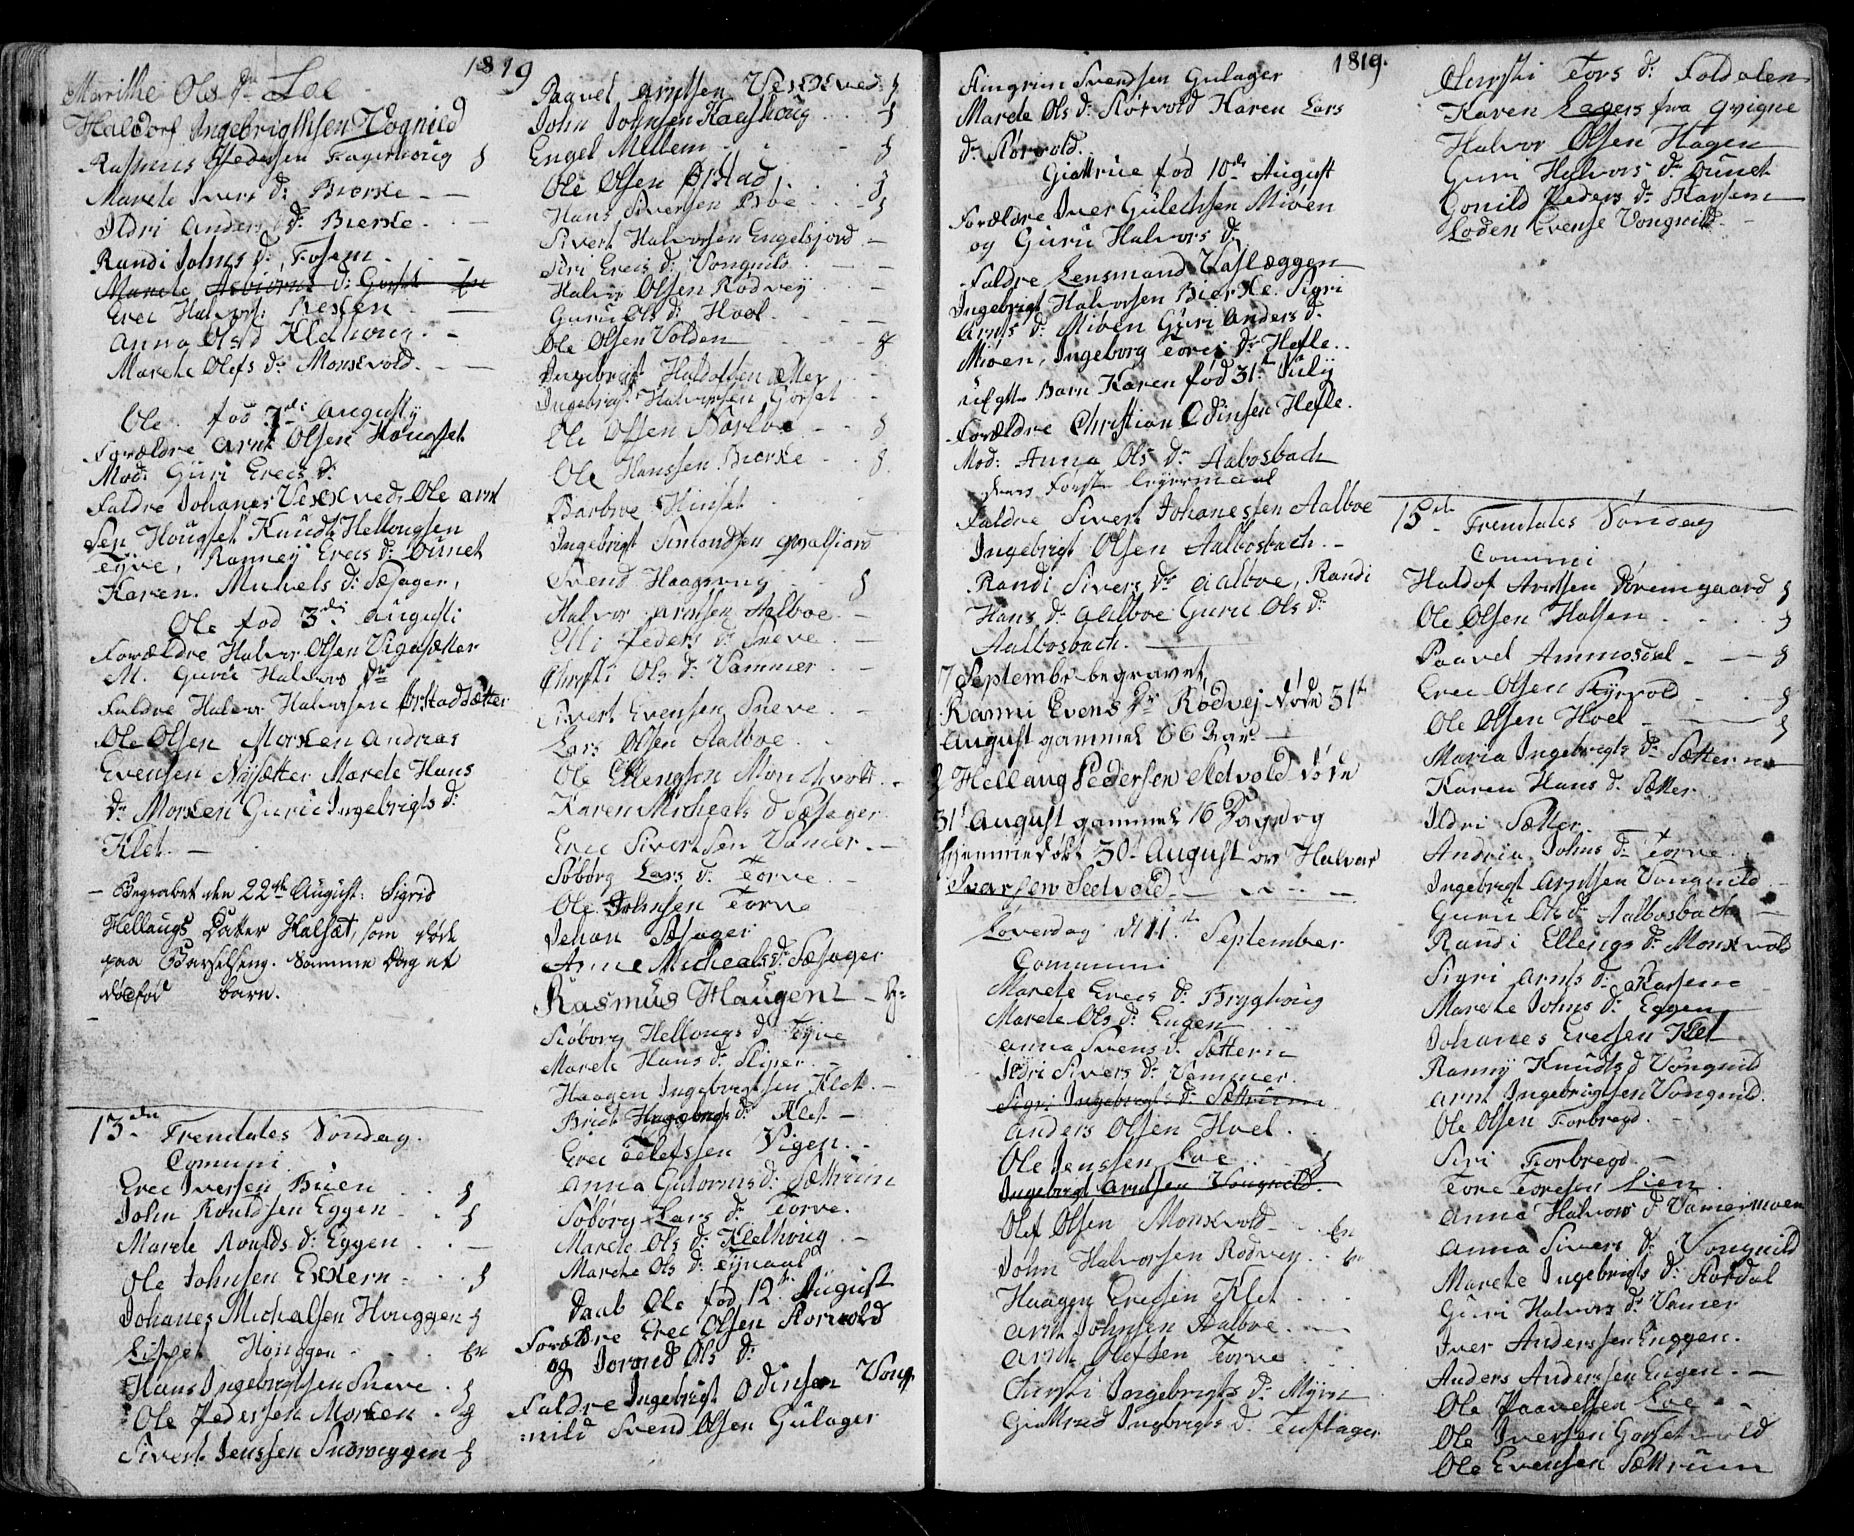 1819
Marithe Ols dr Loe
Haldorf Ingebrigthsen Vognild
Rasmus Pedersen Fagerhoug
Marete Ivers dr Bierke
Ildri Anders dr Bierke
Randi Johns dr Fosem
Marete Asbiörns dr Gorset En
Erec Halvors: Rexen
Anna Ols d Klethoug
Marete Olefs dr Monsvold
Ole fød 7de Augusty
Forældre Arnt Olsen Hougset
Mod: Guri Erecs dr
Faldre Johanes Vexxved, Ole Arnt
Sen Hougset Knudt Hellougsen
Tyve, Ranney Erecs dr Dunet
Karen Michels dr Sæsager,
Ole fød 3di Augusti
Forældre Halvor Olsen Vigasætter
M. Guru Halvors dr
Faldre Halvor Halvorsen Ørstadsætter
Ole Olsen Morken Andreas
Evensen Nysætter Marete Hans
dr Morken Guru Ingebrigts dr
Klet.
Begrabet den 22de August: Sigrid
Hellaugs Datter Halsæt, som døde
paa Barselseng. Samme Dag et
dødfød barn.
13de Trenitates Søndag.
Comuni
Erec Iversen Buen
John Roaldsen Eggen
Marete Roalds dr Eggen
Ole Johnsen Exxern
Johanes Michalsen Houggen
Lisbet Houggen En
Hans Ingebrigtsen Sneve
Ole Pedersen Morken
Sivert Jenssen Snoweggen
Paavel Arntsen Vexxved
John Johnsen Kaashoug
Engel Mellem
Ole Olsen Ørstad
Hans Siversen Boe
Sivert Halvorsen Engelsjord
Siri Erecs dr Vongnild
Halvor Olsen Rodvey
Guru Ols dr Hoel
Ole Olsen Volden
Ingebrigt Haldofsen Sætter
Ingebrigt Halvorsen Gorset
Ole Olsen Norboe
Ole Hanssen Bierke
Barbroe Hinset
Ingebrigt Simondsen
Svend Haagoug
Halvor Arntsen Aalboe
Elli Peders dr Sneve
Christi Ols dr Vammer
Sivert Evensen Sneve
Lars Olsen Aalboe
Ole Ellengsen Monsvold
Karen Micheals d Sæsager
Erec Sivertsen Vamer
Søborg Lars dr Torve
Ole Johnsen Torve
Johan Sæsager
Anne Micheals dr Sæsager
Rasmus Haugen
Søborg Hellougs d Tyve
Marete Hans dr Sliper
Haagen Ingebrigtsen Klet
Brit Haagens dr Klet
Erec Elefssen Vigen
Anna Gutorms dr Sættrum
Søborg Lars dr Torve
Marete Ols dr Klethoug
Marete Ols dr Tynaal
Daab Ole fød 12te August
Forældre Erec Olsen Korvold
og Jorand Ols dr
Faldre Ingebrigt Odinsen Vong
nild Svend Olsen Gulager
1819.
Ringrim Svendsen Gulager
Marete Ols dr Korvold Karen Lars
dr Korvold.
Giøttrue fød 10de August
Forældre Iver Gulechsen Mioen
og Guru Halvors dr
Faldre Lensmand Vasleggen
Ingebrigt Halvorsen Bierke. Sigri
Arnts dr Mioen Guri Anders dr
Mioen, Ingeborg Tores dr Hefle
uægte Barn Karen fød 31te July
Forældre Christian Odinsen Hefle.
Mod: Anna Ols dr Aalbosbach
deres første leyermaal
Faldre Sivert Johanessen Aalboe
Ingebrigt Olsen Aalbosbach.
Randi Sivers dr Aalboe, Randi
Hans dr Aalboe Guru Ols dr
Aalbosbach.
7 Septembr begravet
Ranni Evens Dr Rødvej døde 31te
August gammel 66 Aar
Hellaug Pedersen Sletvold døde
31t August gammel 16 Dage og
hjemmedøbt 30t August ov Halvor
Ivarsen Sletvold
Löverdag d 11te September
Communi
Marete Erecs dr Bryghoug
Marete Ols dr Engen
Anna Svens d Sættern
Ildri Sivers dr Vammer.
Sigri Ingebrigts dr Sættrum
Anders Olsen Hoel.
Ole Jenssen Loe
Ingebrigt Arntsen Vongnild.
Olef Olsen Monsvold En
John Halvorsen Rodvey En
Haagen Erecsen Klet
Arnt Johnsen Aalboe
Arnt Olefsen Torve
Christi Ingebrigts dr Myren
Giøttrud Ingebrigts dr Tuflager
Christi Tors dr Foldalen
Karen Lagers fra Qvigne
Halvor Olsen Hagen
Guri Halvors dr Dunet
Gonild Peders dr Karsem
Loden Evense Vongnild
15de Trenitates Søndag
Comuni
Haldof Arntsen Kremgaard
Ole Olsen Halsen
Paavel Ammosdal
Erec Olsen Kyrvold
Ole Olsen Hoel
Maria Ingebrigts dr Sættern
Karen Hans dr Sætter
Ildri Sætter
Andria Johns dr Torve
Ingebrigt Arntsen Vongnild
Guru Ols dr Aalbosbach
Randi Ellengs dr Monsvold
Sigri Arnts dr Karsem
Marete Johns dr Eggen
Johanes Erecsen Klet
Ranny Knudts d Vongnild
Arnt Ingebrigtsen Vongnild.
Ole Olsen Forbregd
Siri Forbregd
Tore Toresen Lien
Anna Halvors d Vamermoen
Anna Sivers dr Vongnild
Marete Ingebrigts dr Stordal
Guri Halvors dr Vamer
Iver Anderssen Enggen.
Anders Anderssen Engen.
Ole Paavelsen Loe
Ole Iversen Gorsetvold
Ole Evensen Sættrum